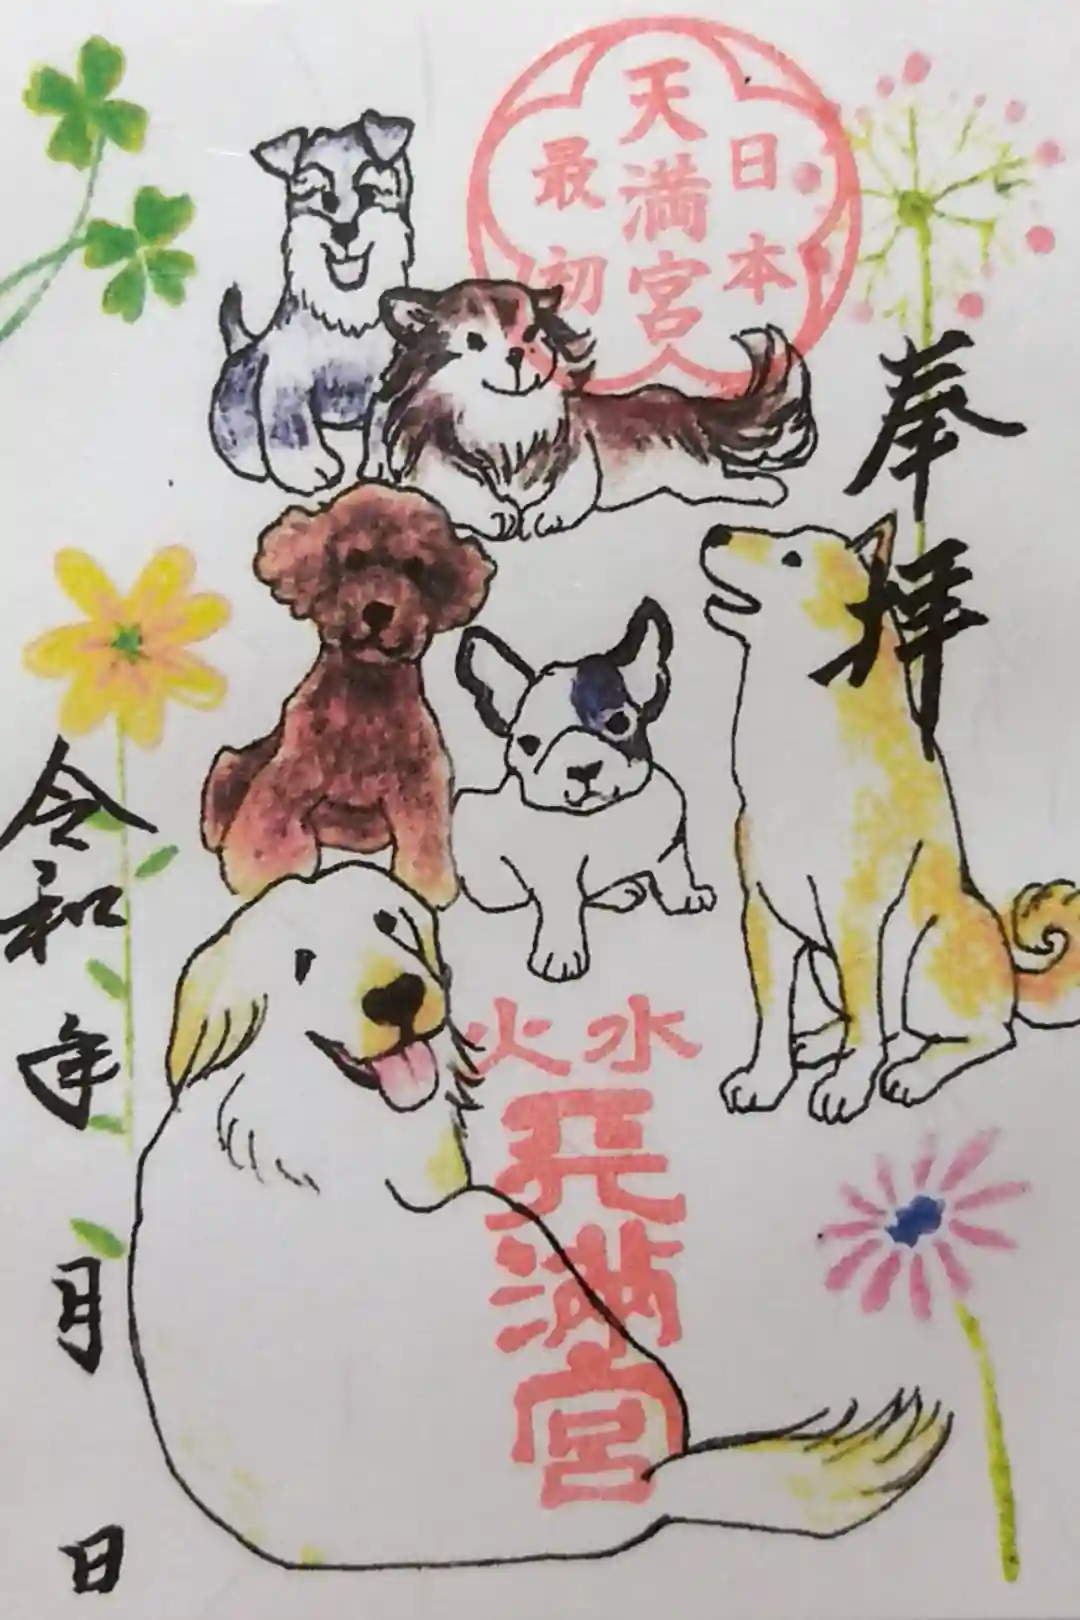 奉拝
日本
天満宮
最初
水火
天満宮
令和 年 月 日